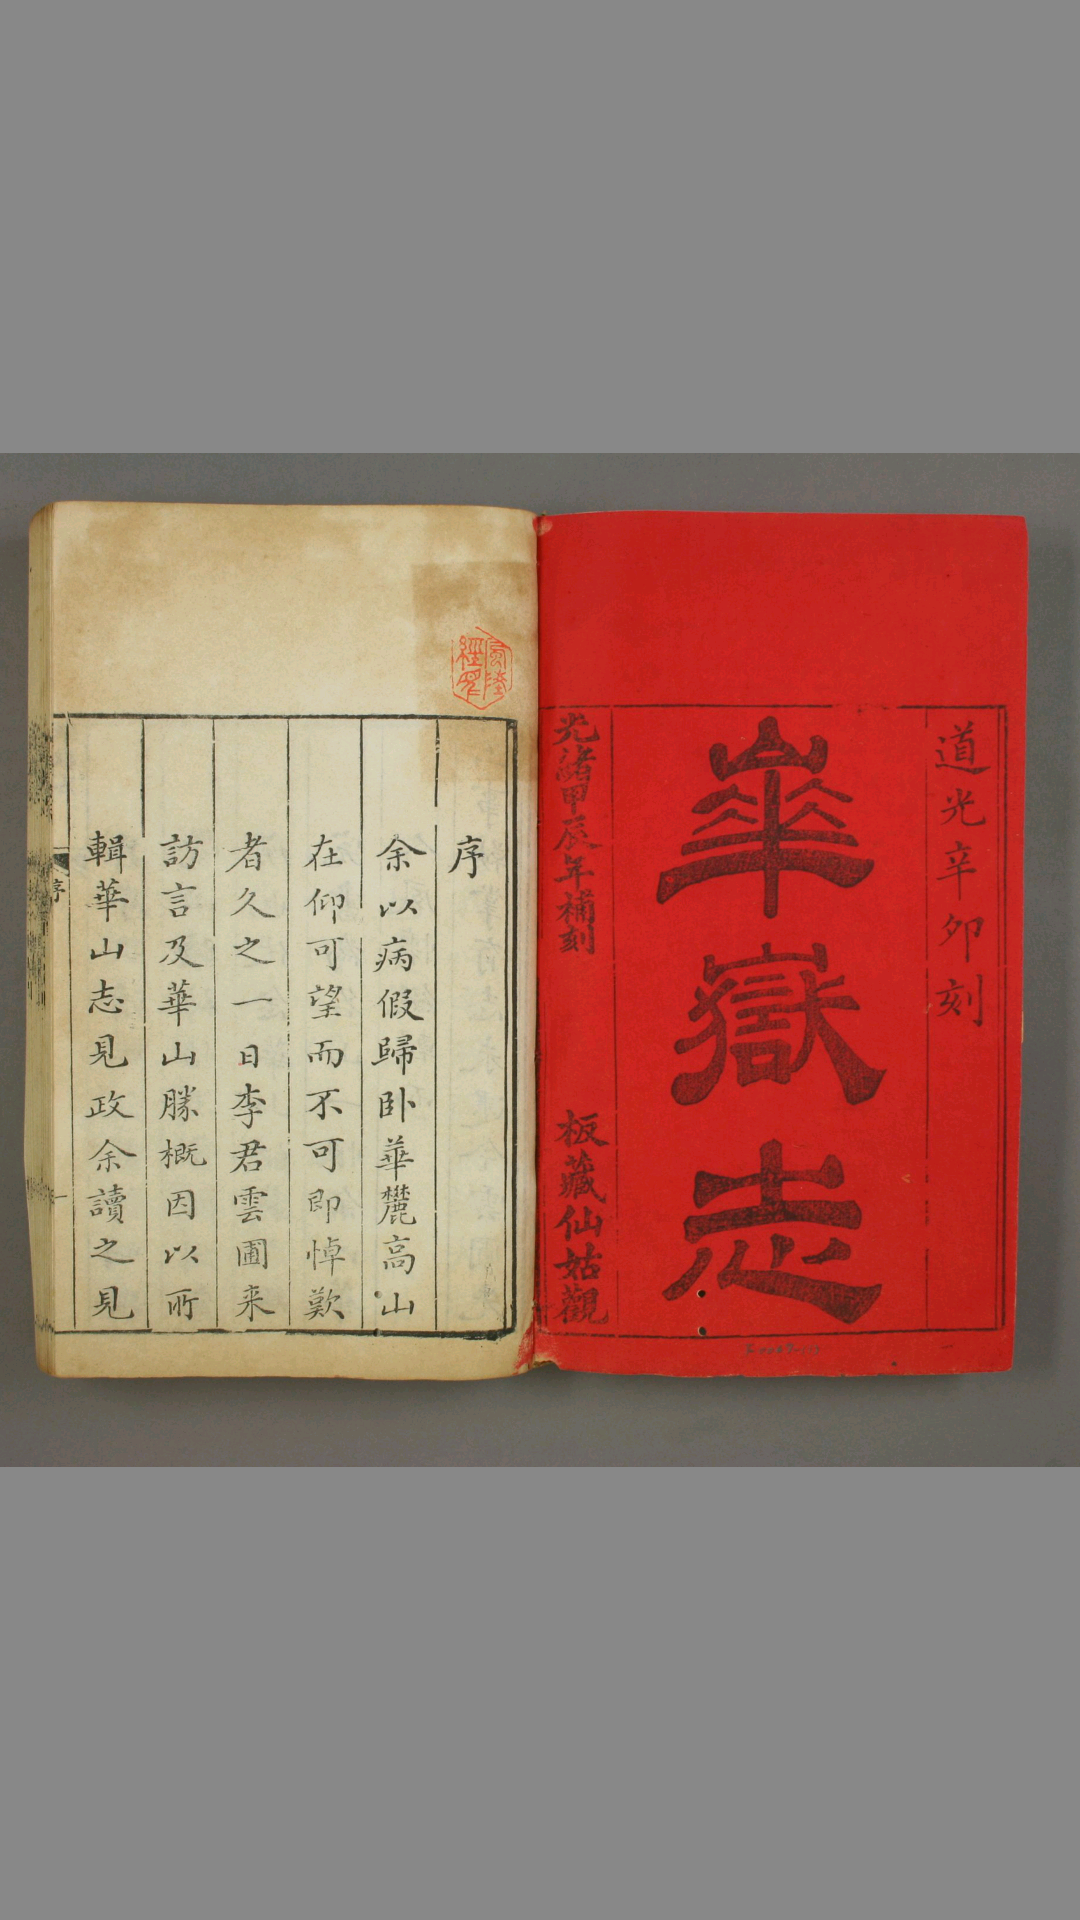 道光辛卯刻
華嶽志
光緒甲辰年補刻
板藏仙姑觀
序
余以病假歸卧華麓高山
在仰可望而不可即悼歎
者久之一日李君雲圃来
訪言及華山勝概因以所
輯華山志見政余讀之見
序
一